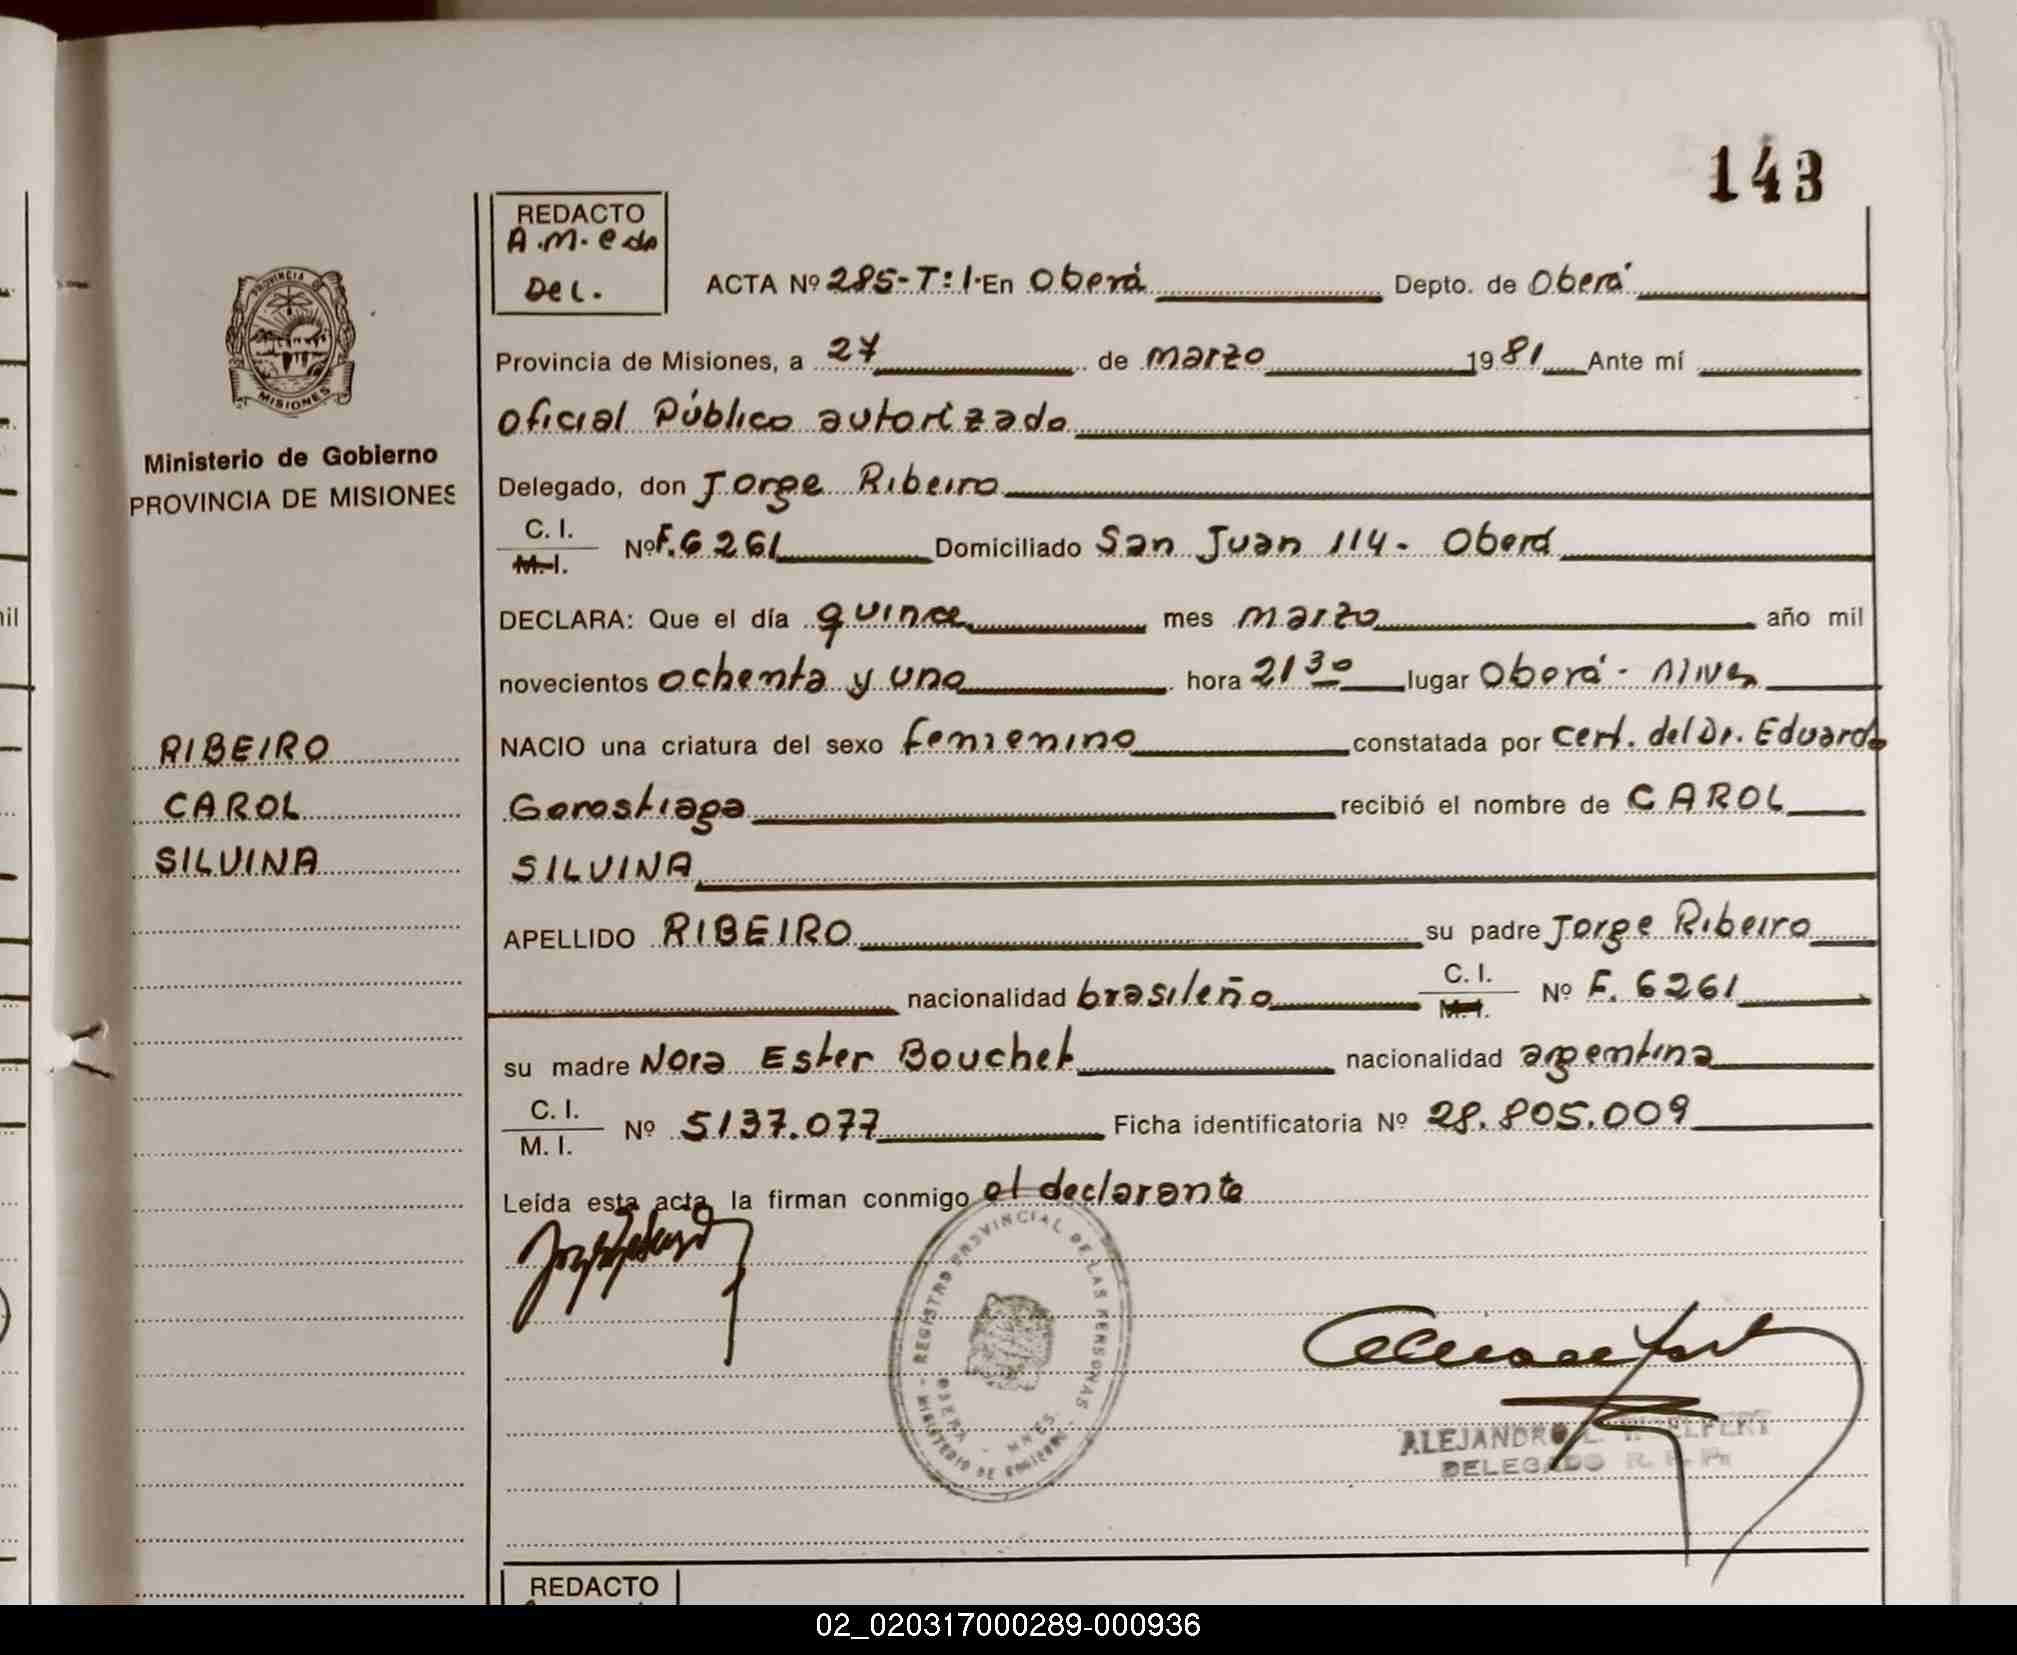 143
REDACTO
A.M. e do
Del.
ACTA Nº 285-T:1. En Oberá Depto. de Oberá
Provincia de Misiones, a 27 de marzo 1981 Ante mí
Oficial Público autorizado
Delegado, don Jorge Ribeiro
C. I.
M. I.
Nº F. 6261 Domiciliado San Juan 114 - Oberá
DECLARA: Que el día quince mes marzo año mil
novecientos ochenta y uno hora 21 30 lugar Oberá -
NACIO una criatura del sexo femenino constatada por cert. del Dr. Eduardo
Gorostiaga recibió el nombre de CAROL
SILVINA
APELLIDO RIBEIRO su padre Jorge Ribeiro
nacionalidad brasileño C. I. M. I. Nº F. 6261
su madre Nora Ester Bouchet nacionalidad argentina
C. I.
M. I.
Nº 5137.077 Ficha identificatoria Nº 28.805.009
Leída esta acta, la firman conmigo el declarante
PROVINCIA DE
MISIONES
Ministerio de Gobierno
PROVINCIA DE MISIONES
RIBEIRO
CAROL
SILVINA
REGISTRO PROVINCIAL DE LAS PERSONAS
OBERA - MNES.
MINISTERIO DE GOBIERNO
ALEJANDRO
DELEGADO R. P. P.
REDACTO
02_020317000289-000936